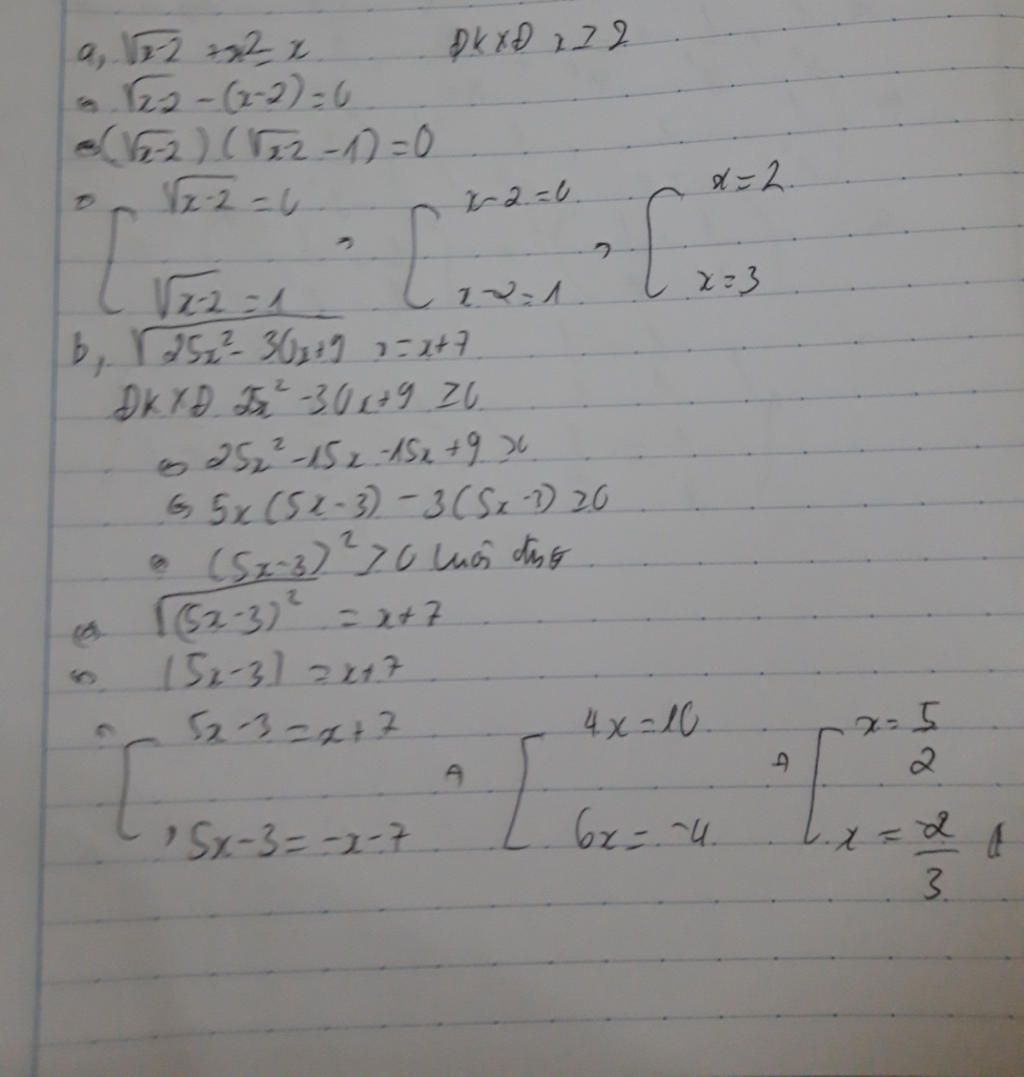 a, √(x-2) +2 = x ĐKXĐ x ≥ 2
⇔ √(x-2) - (x-2) = 0
⇔ (√(x-2)) (√(x-2) - 1) = 0
⇔ [ √(x-2) = 0 ⇔ [ x-2=0 ⇔ [ x=2
√(x-2) = 1 x-2=1 x=3
b, √(25x² - 30x+9) = x+7
ĐKXĐ 25x² -30x+9 ≥0
⇔ 25x² -15x -15x +9 ≥0
⇔ 5x(5x-3) - 3(5x-3) ≥0
⇔ (5x-3)² ≥0 luôn đúng
⇔ √((5x-3)²) = x+7
⇔ |5x-3| = x+7
⇔ [ 5x-3 = x+7 ⇔ [ 4x=10 ⇔ [ x= 5/2
5x-3 = -x-7 6x= -4 x = -2/3